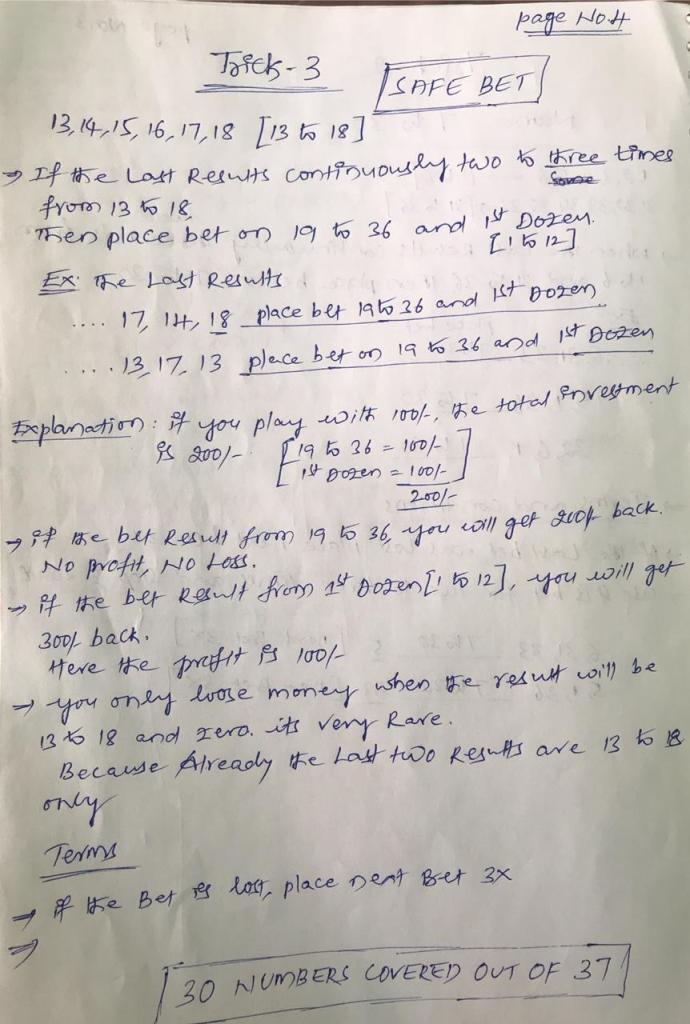 page No.4
Trick-3
SAFE BET
13,14,15,16,17,18 [13 to 18]
→ If the Last Results continuously two to three times
some
from 13 to 18
Then place bet on 19 to 36 and 1st Dozen.
[1 to 12]
Ex: The Last Results
.... 17, 14, 18 place bet 19 to 36 and 1st Dozen
.... 13, 17, 13 place bet on 19 to 36 and 1st Dozen
Explanation: if you play with 100/-, the total investment
is 200/- [19 to 36 = 100/-
1st Dozen = 100/-]
200/-
→ if the bet Result from 19 to 36, you will get 200/- back.
No profit, No Loss.
→ if the bet Result from 1st Dozen [1 to 12], you will get
300/- back.
Here the profit is 100/-
→ you only loose money when the result will be
13 to 18 and zero. its very Rare.
Because Already the Last two Results are 13 to 18
only
Terms
→ if the Bet is lost, place next Bet 3x
→
30 NUMBERS COVERED OUT OF 37